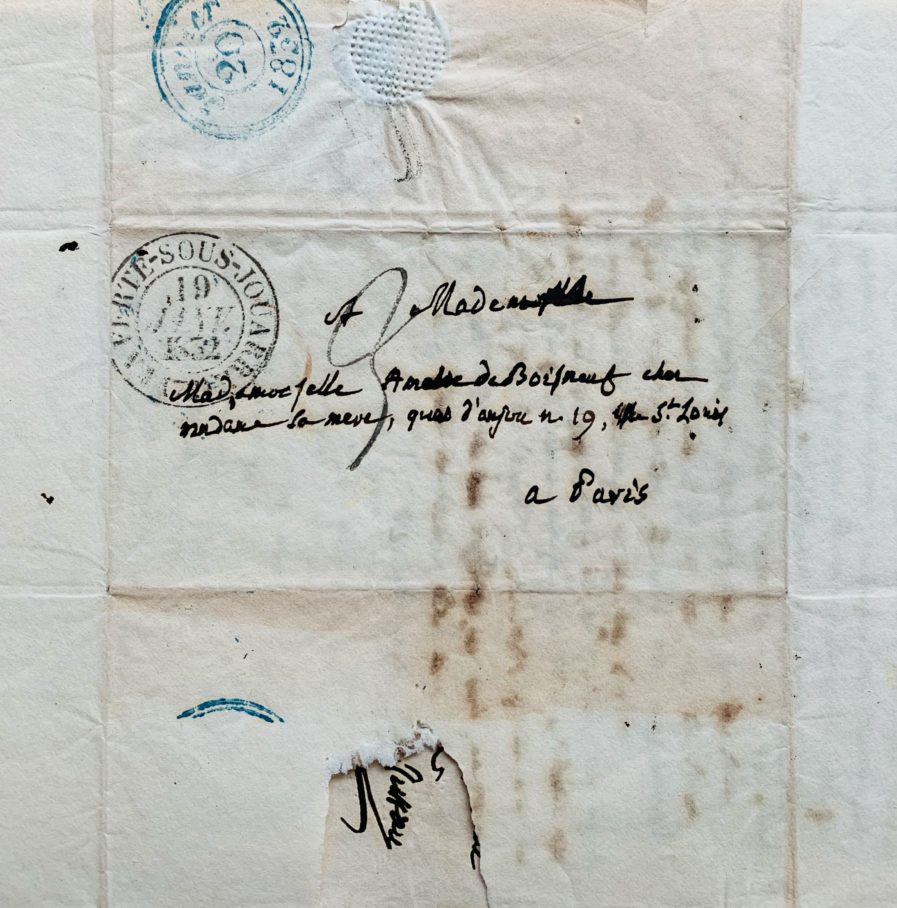 JANVIER
20
1832
LA FERTÉ-SOUS-JOUARRE
19
JANV.
1832
A Mademoiselle
3
Mademoiselle Amelie de Boisneuf cher
madame sa mere, quai d'anjou n. 19, ile St. Louis
a Paris